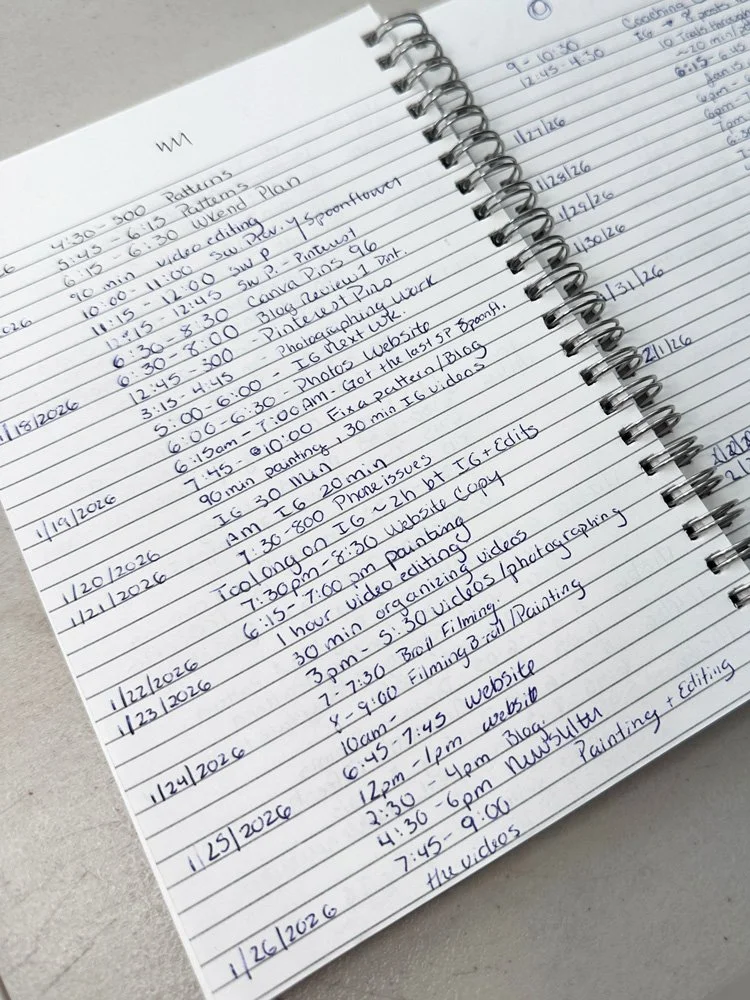 4:30-500 Patterns
5:45 - 6:15 Patterns
6:15 - 6:30 Wkend Plan
90 min video editing
10:00 - 11:00 Sw. Prov. y Spoonflower
11:15 - 12:00 SW P
12:15 - 12:45 Sw. P. - Pinterest
6:30 - 8:30 Canva Pins 96
6:30 - 8:00 Blog Review 1 Pnt.
12:45 - 300 - Pinterest Pins
1/18/2026 3:15 - 4:45 - Photographing work
5:00 - 6:00 - IG Next Wk.
6:00 - 6:30 - Photos Website
6:15am - 7:00AM - Got the last SP Spoonfl.
7:45 - 10:00 Fix a pattern/Blog
1/19/2026 90 min painting, 30 min IG videos
IG 30 min
1/20/2026 Am IG 20 min
1/21/2026 7:30-800 Phone issues
Too long on IG ~ 2h bt IG + Edits
7:30pm - 8:30 Website Copy
1/22/2026 6:15 - 7:00 pm painting
1/23/2026 1 hour video editing
30 min organizing videos
3pm - 5:30 videos/photographing
1/24/2026 7 - 7:30 Broll Filming.
8 - 9:00 Filming B-roll/Painting
10am -
1/25/2026 6:45 - 7:45 website
12pm - 1pm website
2:30 - 4pm Blog.
4:30 - 6pm newsltr
7:45 - 9:00 Painting + Editing
1/26/2026 the videos
Coaching
IG
9 - 10:30
12:45 - 4:30
~20 min
6:15 - 6:45
6pm -
1/27/26
7pm
1/28/26
1/29/26
1/30/26
1/31/26
2/1/26